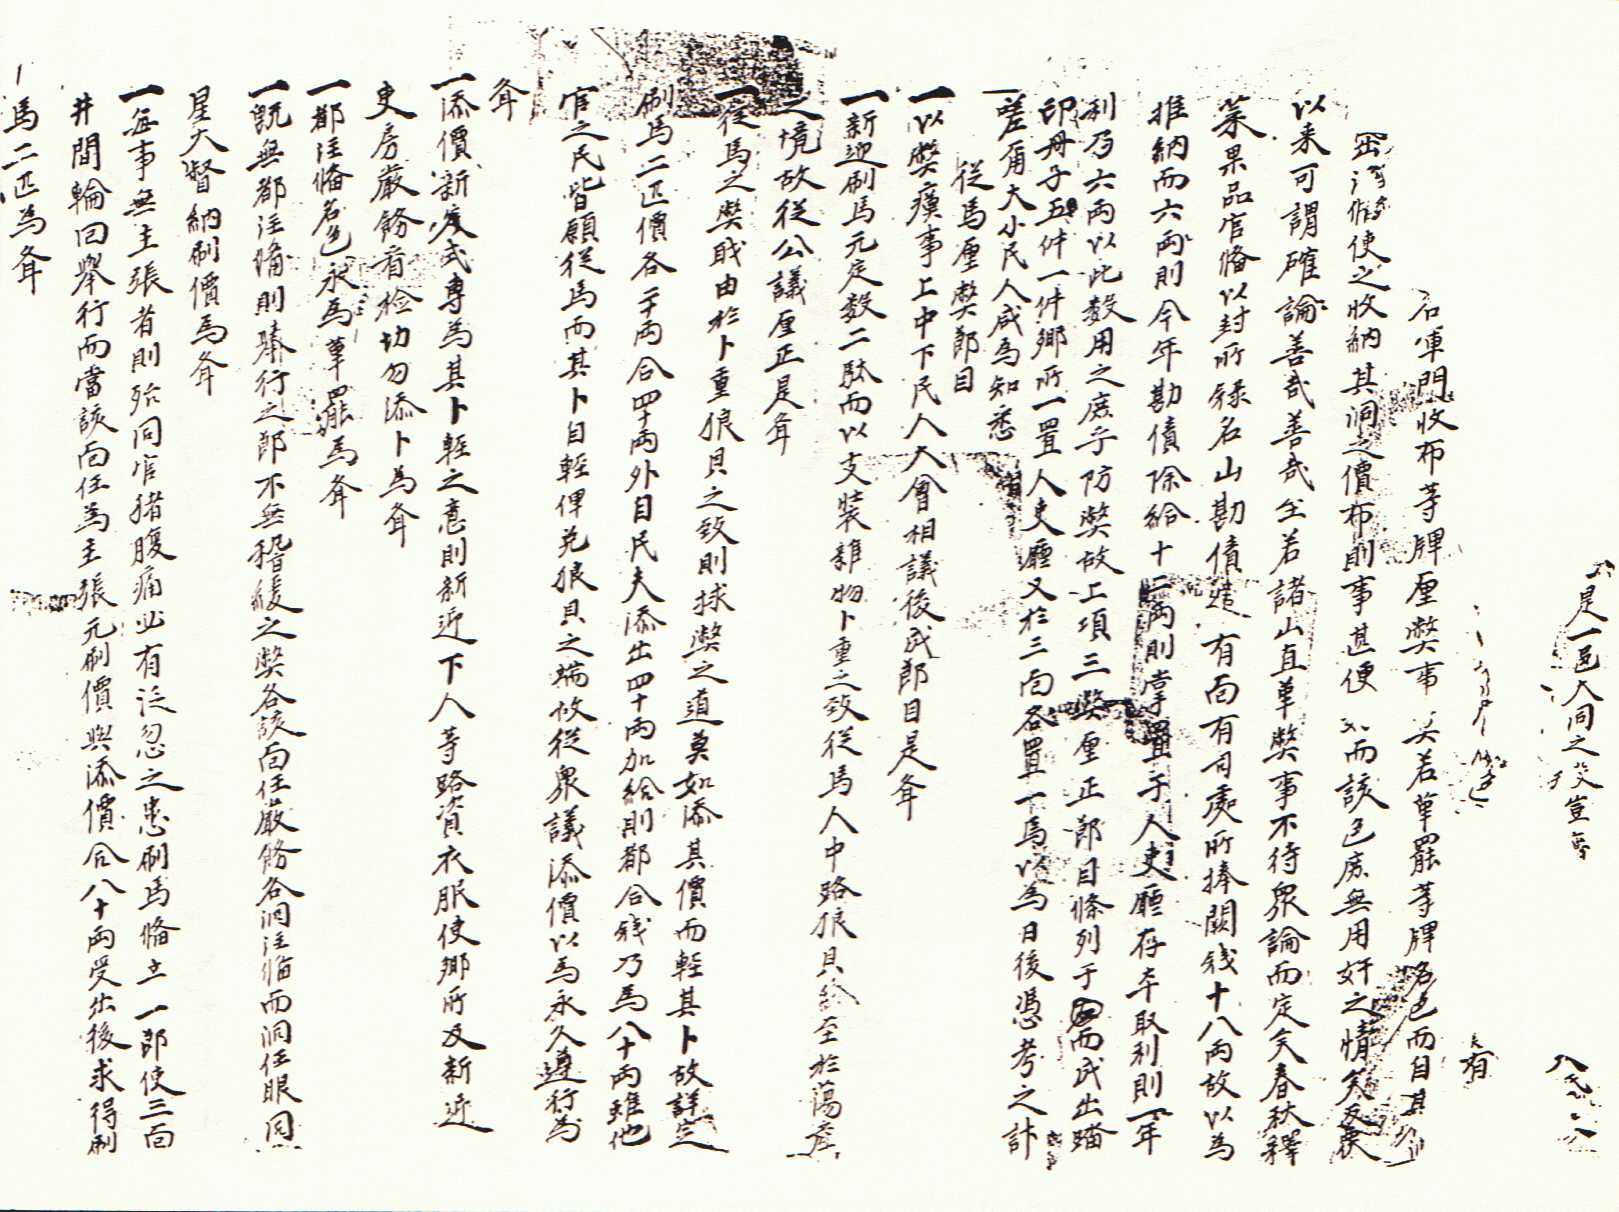 是一邑大同之 宣
有
名軍門收布等牌厘弊事 若革罷等牌名色而自其
使之收納其洞之價布則事甚便 而該色處無用奸之情矣
以来可謂確論善哉善哉至若諸山直革弊事不待衆論而定矣春秋釋
菜果品官俻以封所錄名山勘債 有面有司處所捧闕錢十八兩故以為
推納而六兩則今年勘債除給十二兩則掌置于人吏廳存本取利則一年
利乃六兩以此數用之庶乎防弊故上項三弊厘正節目條列于 面成出踏
印册子五件一件鄉所一置人吏廳又於三面各置一焉以為日後憑考之計
是甬大小民人咸為知悉
從馬厘弊節目
一以弊瘼事上中下民人大會相議後成節目是斉
一新迎刷馬元定數二駄而以支裝雜物卜重之致從馬人中路狼貝終至於蕩産
之境故從公議厘正是斉
一從馬之弊職由於卜重狼貝之致則捄弊之道莫如添其價而輕其卜故詳定
刷馬二匹價各二十兩合四十兩外自民夫添出四十兩加給則都合錢乃為八十兩雖他
官之民皆願從馬而其卜自輕俾免狼貝之端故從衆議添價以為永久遵行為
斉
一添價新度式專為其卜輕之意則新迎下人等路資衣服使鄉所及新迎
吏房嚴飭看檢切勿添卜為斉
一都注俻名色永為革罷為斉
一旣無都注俻則擧行之節不無稽緩之弊各該面任嚴飭各洞注俻而洞任眼同
星火督納刷價為斉
一每事無主張者則殆同官猪腹痛必有泛忽之患刷馬俻立一節使三面
井間輪回擧行而當該面任為主張元刷價與添價合八十兩受出後求得刷
馬二匹為斉